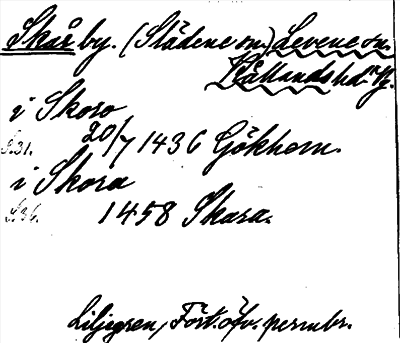 Skår by. (Slädene sn.) Levene sn.
Kållands hd Vg.
i Skoro
S.31. 20/7 1436 Gökhem.
i Skora
S.36. 1458 Skara.
Liljegren, Fört. öfv. permbr.